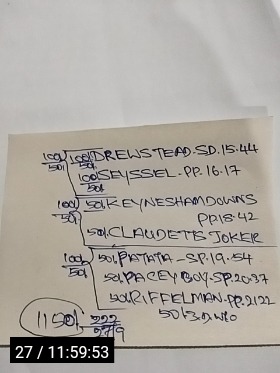 100/501 100/501 DREWSTEAD-SD.15.44
100/501 SEYSSEL-PP.16-17
100/501 501.KEYNESHAMDOWNS
PP18.42
501.CLAUDETTS JOKER
100/501 501.PATATA-SP.19.54
501.PACEY BOY-SP.20.37
501.RIFFELMAN.PP.2122
501
1150l
27 / 11:59:53